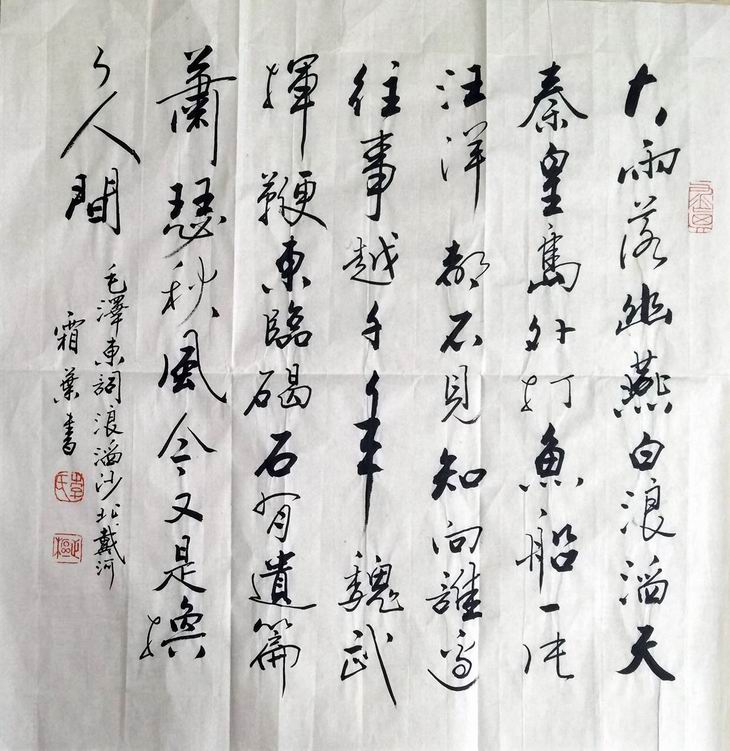 大雨落幽燕白浪滔天
秦皇島外打魚船一片
汪洋都不見知向誰邊
往事越千年魏武
揮鞭東臨碣石有遺篇
蕭瑟秋風今又是換
了人間
毛澤東詞浪滔沙北戴河
霜葉書